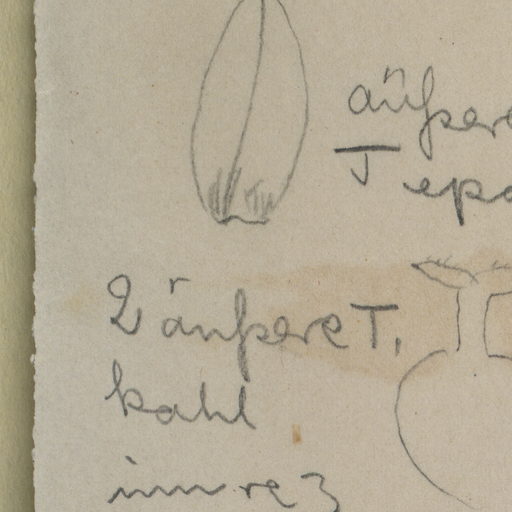 äußere
Tepa
2 äußere T.
kahl
innre 3